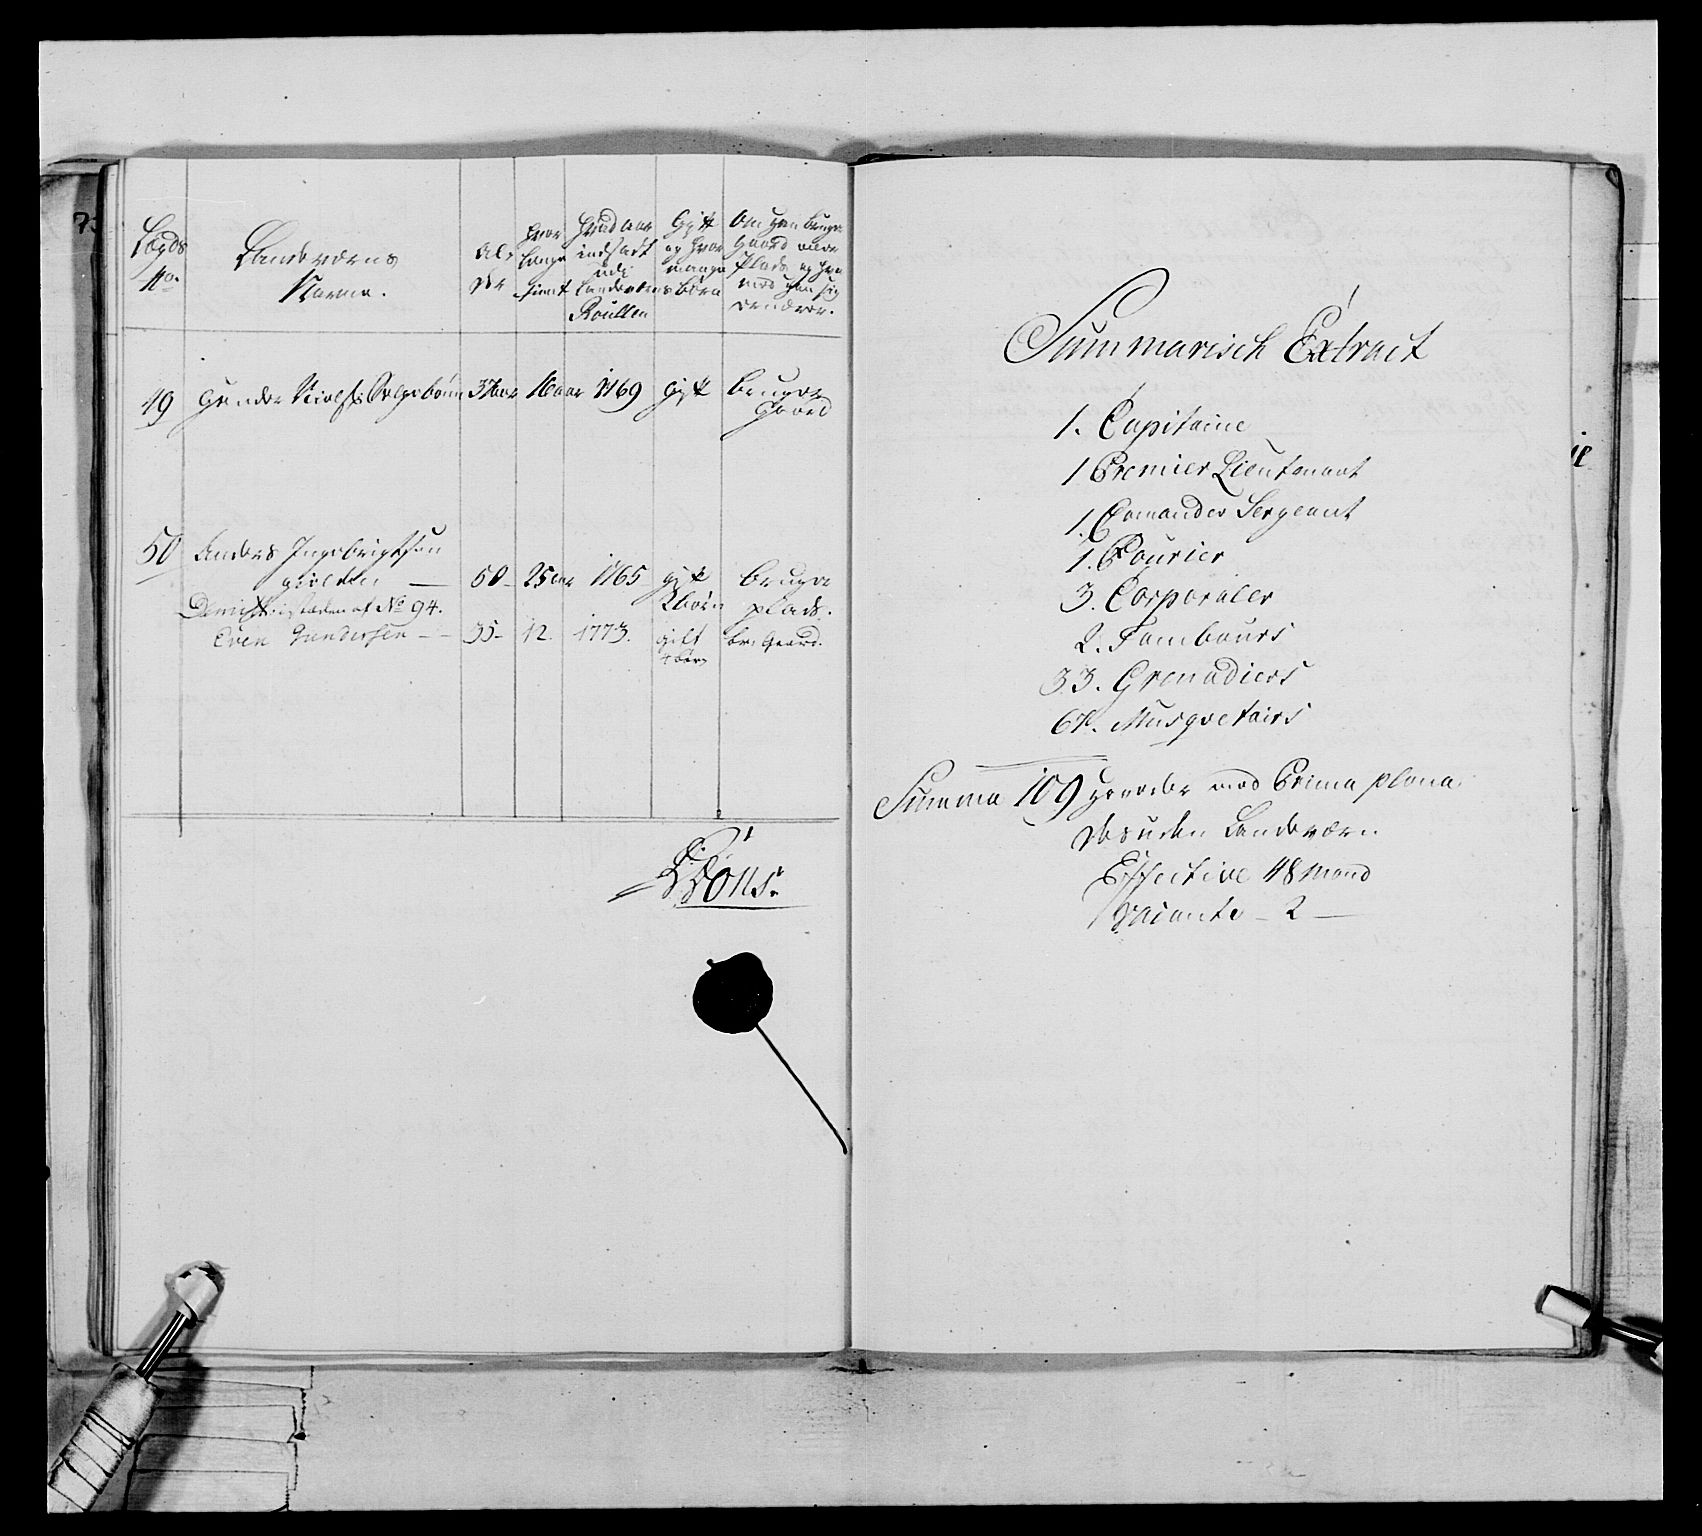 Lægds
No.
Landeværns
Navne.
Al-
der
hvor
lenge
tient
hvad aar
indsadt
udi
Landeværns
Roullen
Gift
og hvor
mange
børn
Om han bruger
Gaard eller
Plads og hvor
med han sig
ernærer.
49 Gunder Nielss: 37 aar 16 aar 1769 gift bruger
gaard
50 Anders Ingebrigtsen
50 - 25 aar 1765 gift bruger
2 børn plads.
istæden af No 94.
Even Gundersen - 35 - 12. 1773. gift br: Gaard.
4 børn
Summarisch Extract
1. Capitaine
1 Premier Lieutenant
1. Comander Sergeant
1. Fourier
3. Corporaler
2. Tambours
33. Grenadiers
67. Musqvetairs
Summa 109 hoveder med Prima plana
desuden Landeværn
Effective 48 Mand
Vacante - 2 -